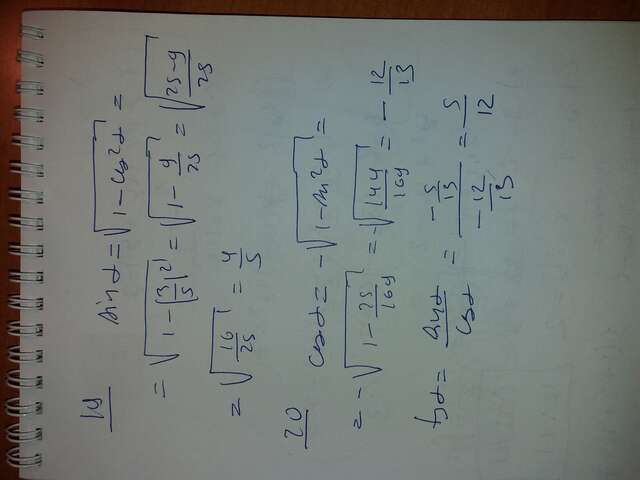 19
sin α = √(1 - cos²α) =
= √(1 - (3/5)²) = √(1 - 9/25) = √((25-9)/25)
= √(16/25) = 4/5
20
cos α = -√(1 - sin²α) =
= -√(1 - 25/169) = -√(144/169) = - 12/13
tg α = sin α / cos α = (-5/13) / (-12/13) = 5/12